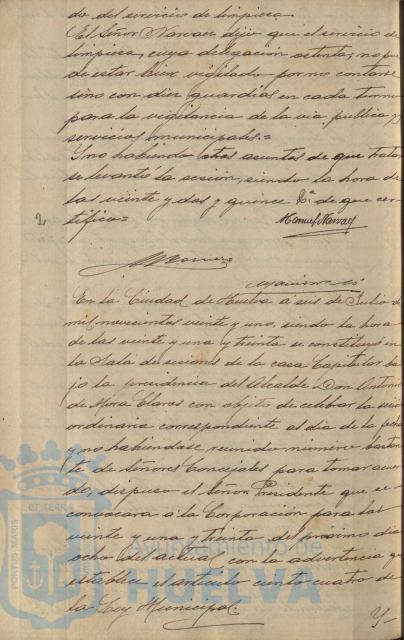 do del servicio de limpieza
El Señor Narvaez dijo que el servicio de
limpieza, cuya delegación ostenta, no pue
de estar bien vigilado por no contarse
sino con diez guardias en cada turno
para la vigilancia de la via publica y
servicios municipales.=
Y no habiendo otros asuntos de que tratar
se levantó la sesión, siendo la hora de
las veinte y dos y quince de que cer-
2
tifico=
Manuel Narvaez
En la Ciudad de Huelva a seis de Julio de
mil novecientos veinte y uno, siendo la hora
de las veinte y una y treinta se constituyó en
la Sala de sesiones de la casa Capitular ba-
jo la presidencia del Alcalde Don Antonio
de Mora Claros con objeto de celebrar la sesión
ordinaria correspondiente al dia de la fecha
y no habiendose reunido número bastan-
te de señores Concejales para tomar acuer-
do, dispuso el Señor Presidente que se
convocara á la Corporación para las
veinte y una treinta del próximo dia
ocho del actual, con la advertencia que
establece el articulo ciento cuatro de
la Ley Municipal.
Ayuntamiento de
HUELVA
PORTUS MARIS
ET TERRÆ